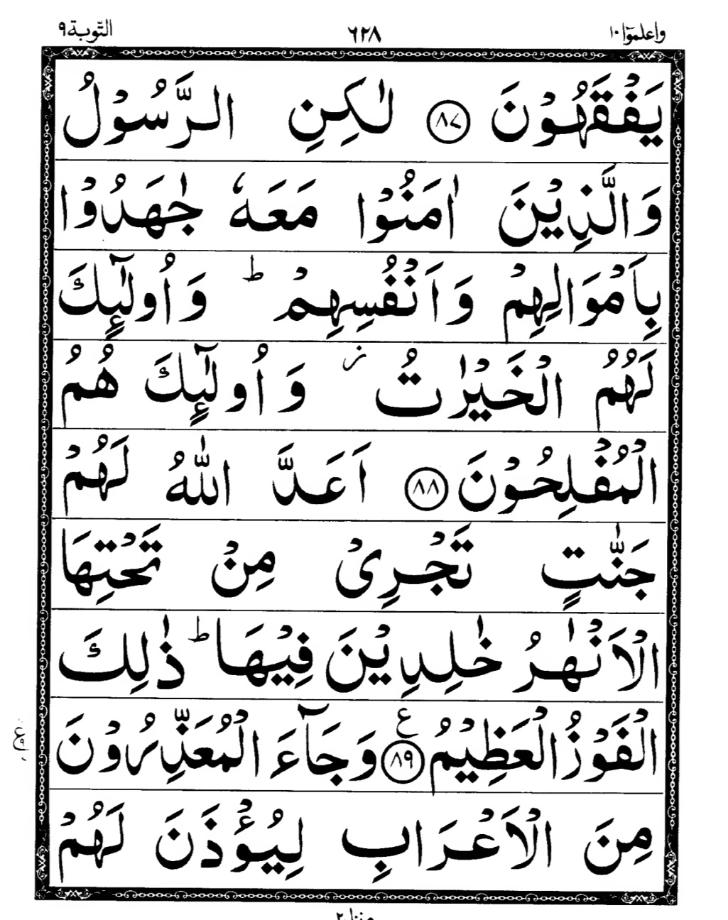 واعلموٓا ١٠ ٦٢٨ التّوبة ٩
يَفْقَهُوْنَ ﴿٨٧﴾ لٰكِنِ الرَّسُوْلُ
وَالَّذِيْنَ اٰمَنُوْا مَعَهٗ جٰهَدُوْا
بِاَمْوَالِهِمْ وَاَنْفُسِهِمْ ؕ وَاُولٰٓئِكَ
لَهُمُ الْخَيْرٰتُ ؗ وَاُولٰٓئِكَ هُمُ
الْمُفْلِحُوْنَ ﴿٨٨﴾ اَعَدَّ اللّٰهُ لَهُمْ
جَنّٰتٍ تَجْرِيْ مِنْ تَحْتِهَا
الْاَنْهٰرُ خٰلِدِيْنَ فِيْهَا ؕ ذٰلِكَ
الْفَوْزُ الْعَظِيْمُ ﴿٨٩﴾ ع وَجَآءَ الْمُعَذِّرُوْنَ
مِنَ الْاَعْرَابِ لِيُؤْذَنَ لَهُمْ
منزل ٢